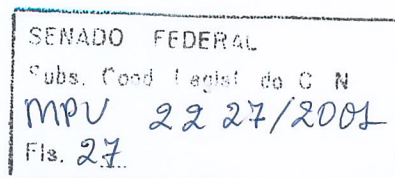 SENADO FEDERAL
Subs. Coord Legisl do C N
MPV 2227/2001
Fls. 27